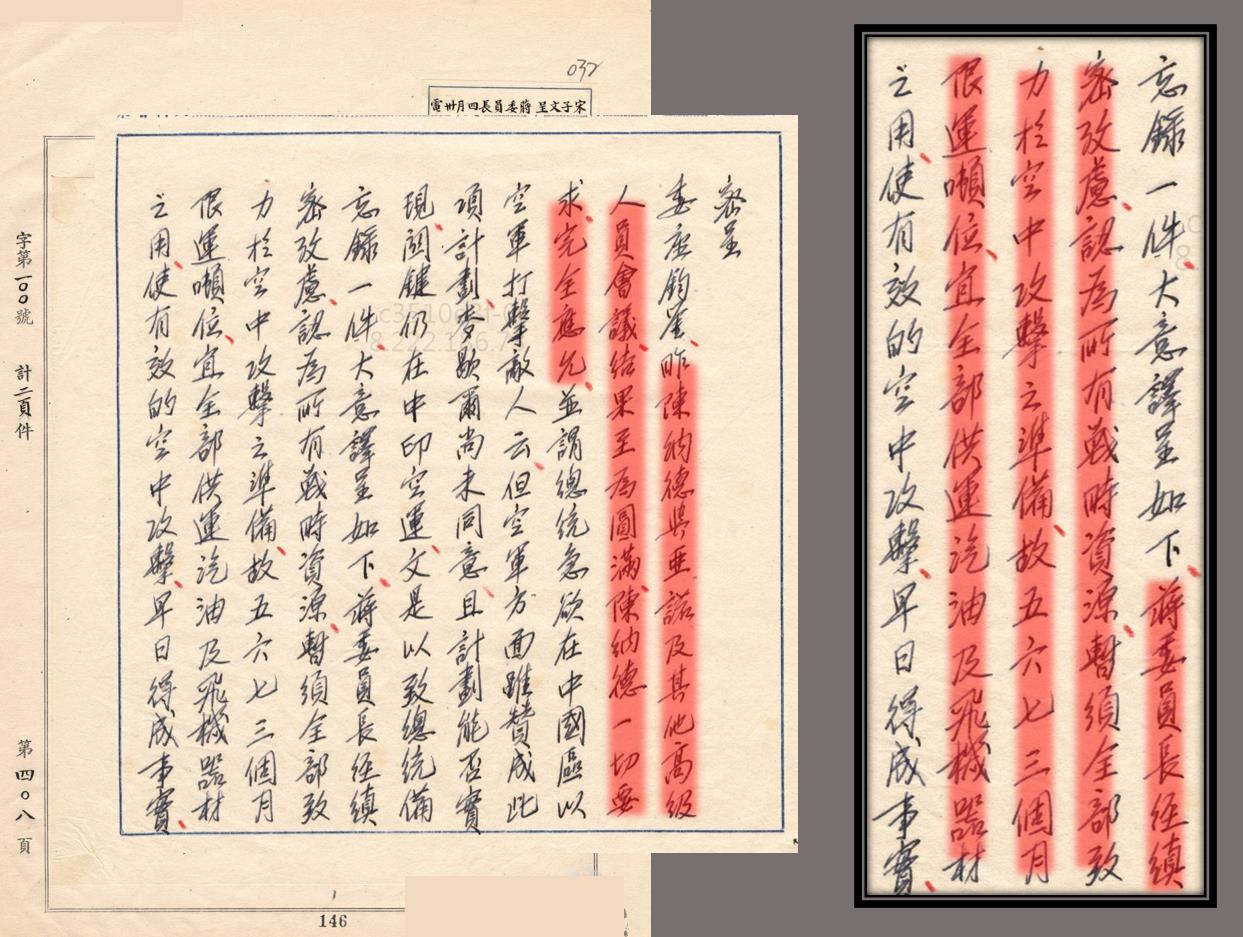 032
宋子文呈蔣委員長四月卅電
密呈
委座鈞鉴昨陳納德與亜諾及其他高級
人員會議结果至為圓滿陳納德一切要
求完全應允並謂總统急欲在中國區以
空軍打擊敵人云但空軍方面雖贊成此
項計劃麥歇爾尚未同意且計劃能否實
現関鍵仍在中印空運文是以致總统備
忘錄一件大意譯呈如下蔣委員長经縝
密攷慮認為所有戰時資源暫須全部致
力於空中攻擊之準備故五六七三個月
假運噸位宜全部供運汽油及飛機器材
之用使有效的空中攻擊早日得成事實
字第一〇〇號
計二頁件
第四〇八頁
146
忘錄一件大意譯呈如下蔣委員長经縝
密攷慮認為所有戰時資源暫須全部致
力於空中攻擊之準備故五六七三個月
假運噸位宜全部供運汽油及飛機器材
之用使有效的空中攻擊早日得成事實